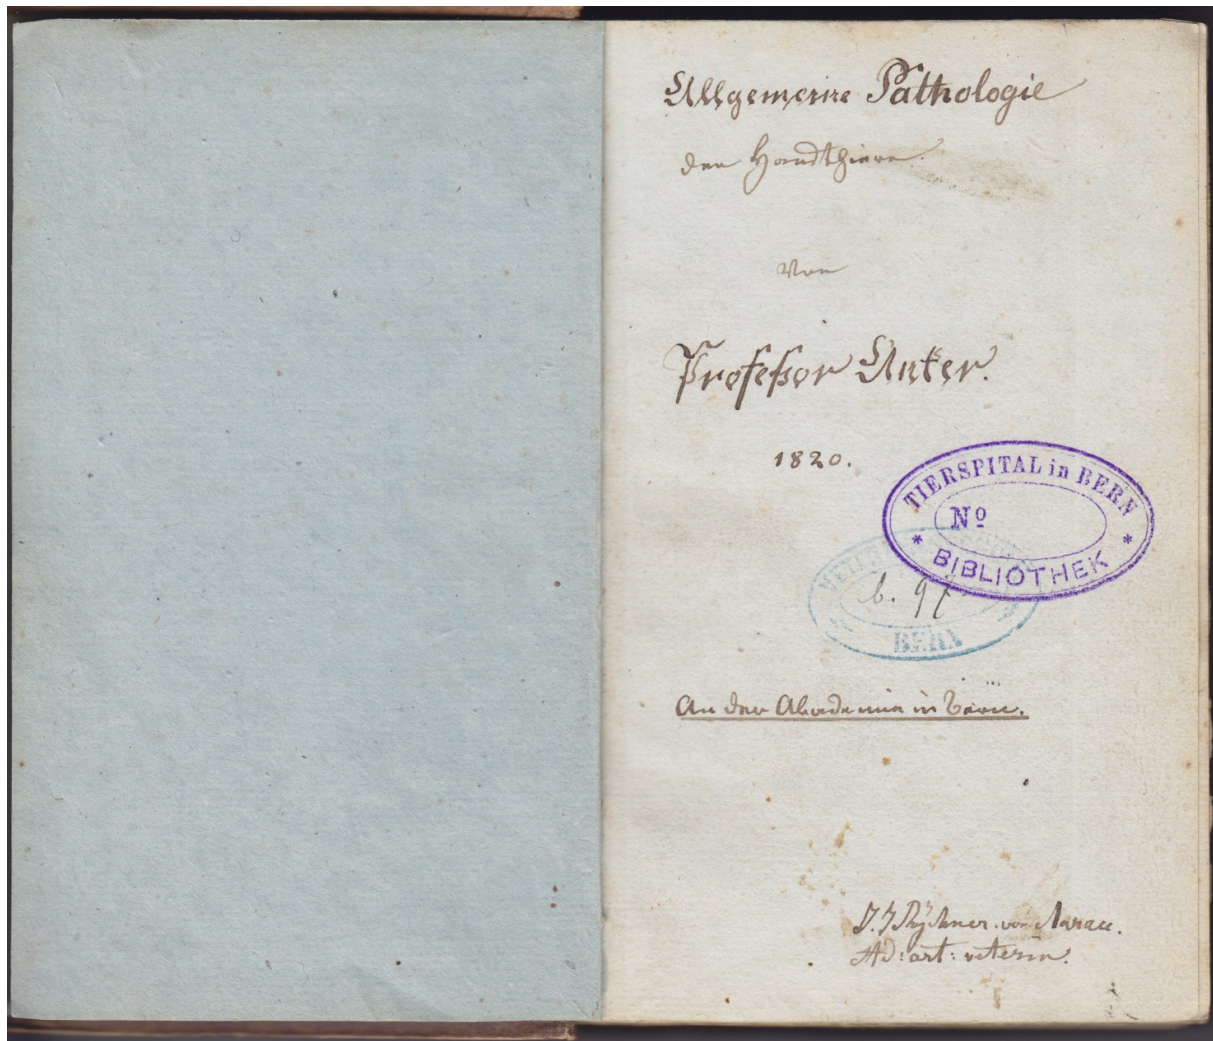 Allgemeine Pathologie
der Hausthiere.
Von
Professor Anker.
1820.
TIERSPITAL in BERN
Nº
BIBLIOTHEK
b. 97
BERN
An der Akademie in Bern.
J. J. Rychner. von Aarau.
Ad: art: veterin.